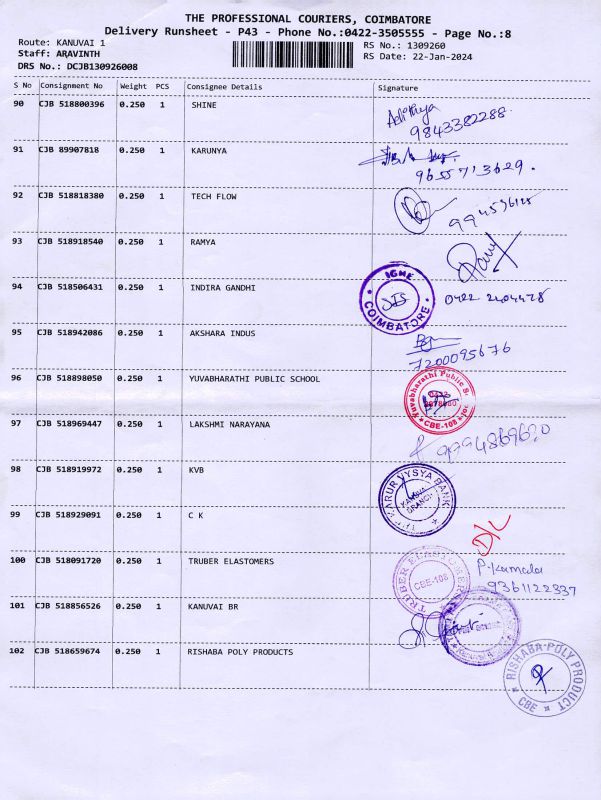 THE PROFESSIONAL COURIERS, COIMBATORE
Delivery Runsheet - P43 - Phone No.:0422-3505555 - Page No.:8
Route: KANUVAI 1 RS No.: 1309260
Staff: ARAVINTH RS Date: 22-Jan-2024
DRS No.: DCJB130926008
S No Consignment No Weight PCS Consignee Details Signature
90 CJB 518800396 0.250 1 SHINE
9843382288
91 CJB 89907818 0.250 1 KARUNYA
9655713629.
92 CJB 518818380 0.250 1 TECH FLOW
93 CJB 518918540 0.250 1 RAMYA
94 CJB 518506431 0.250 1 INDIRA GANDHI
IGNE COIMBATORE
95 CJB 518942086 0.250 1 AKSHARA INDUS
7200095676
96 CJB 518898050 0.250 1 YUVABHARATHI PUBLIC SCHOOL
Yuvabharathi Public
CBE-108
97 CJB 518969447 0.250 1 LAKSHMI NARAYANA
98 CJB 518919972 0.250 1 KVB
KARUR VYSYA BANK
BRANCH
99 CJB 518929091 0.250 1 C K
D/L
100 CJB 518091720 0.250 1 TRUBER ELASTOMERS
TRUBER ELASTOMER
CBE-108
P. Kamala
9361122337
101 CJB 518856526 0.250 1 KANUVAI BR
102 CJB 518659674 0.250 1 RISHABA POLY PRODUCTS
RISHABA POLY PRODUCT
CBE